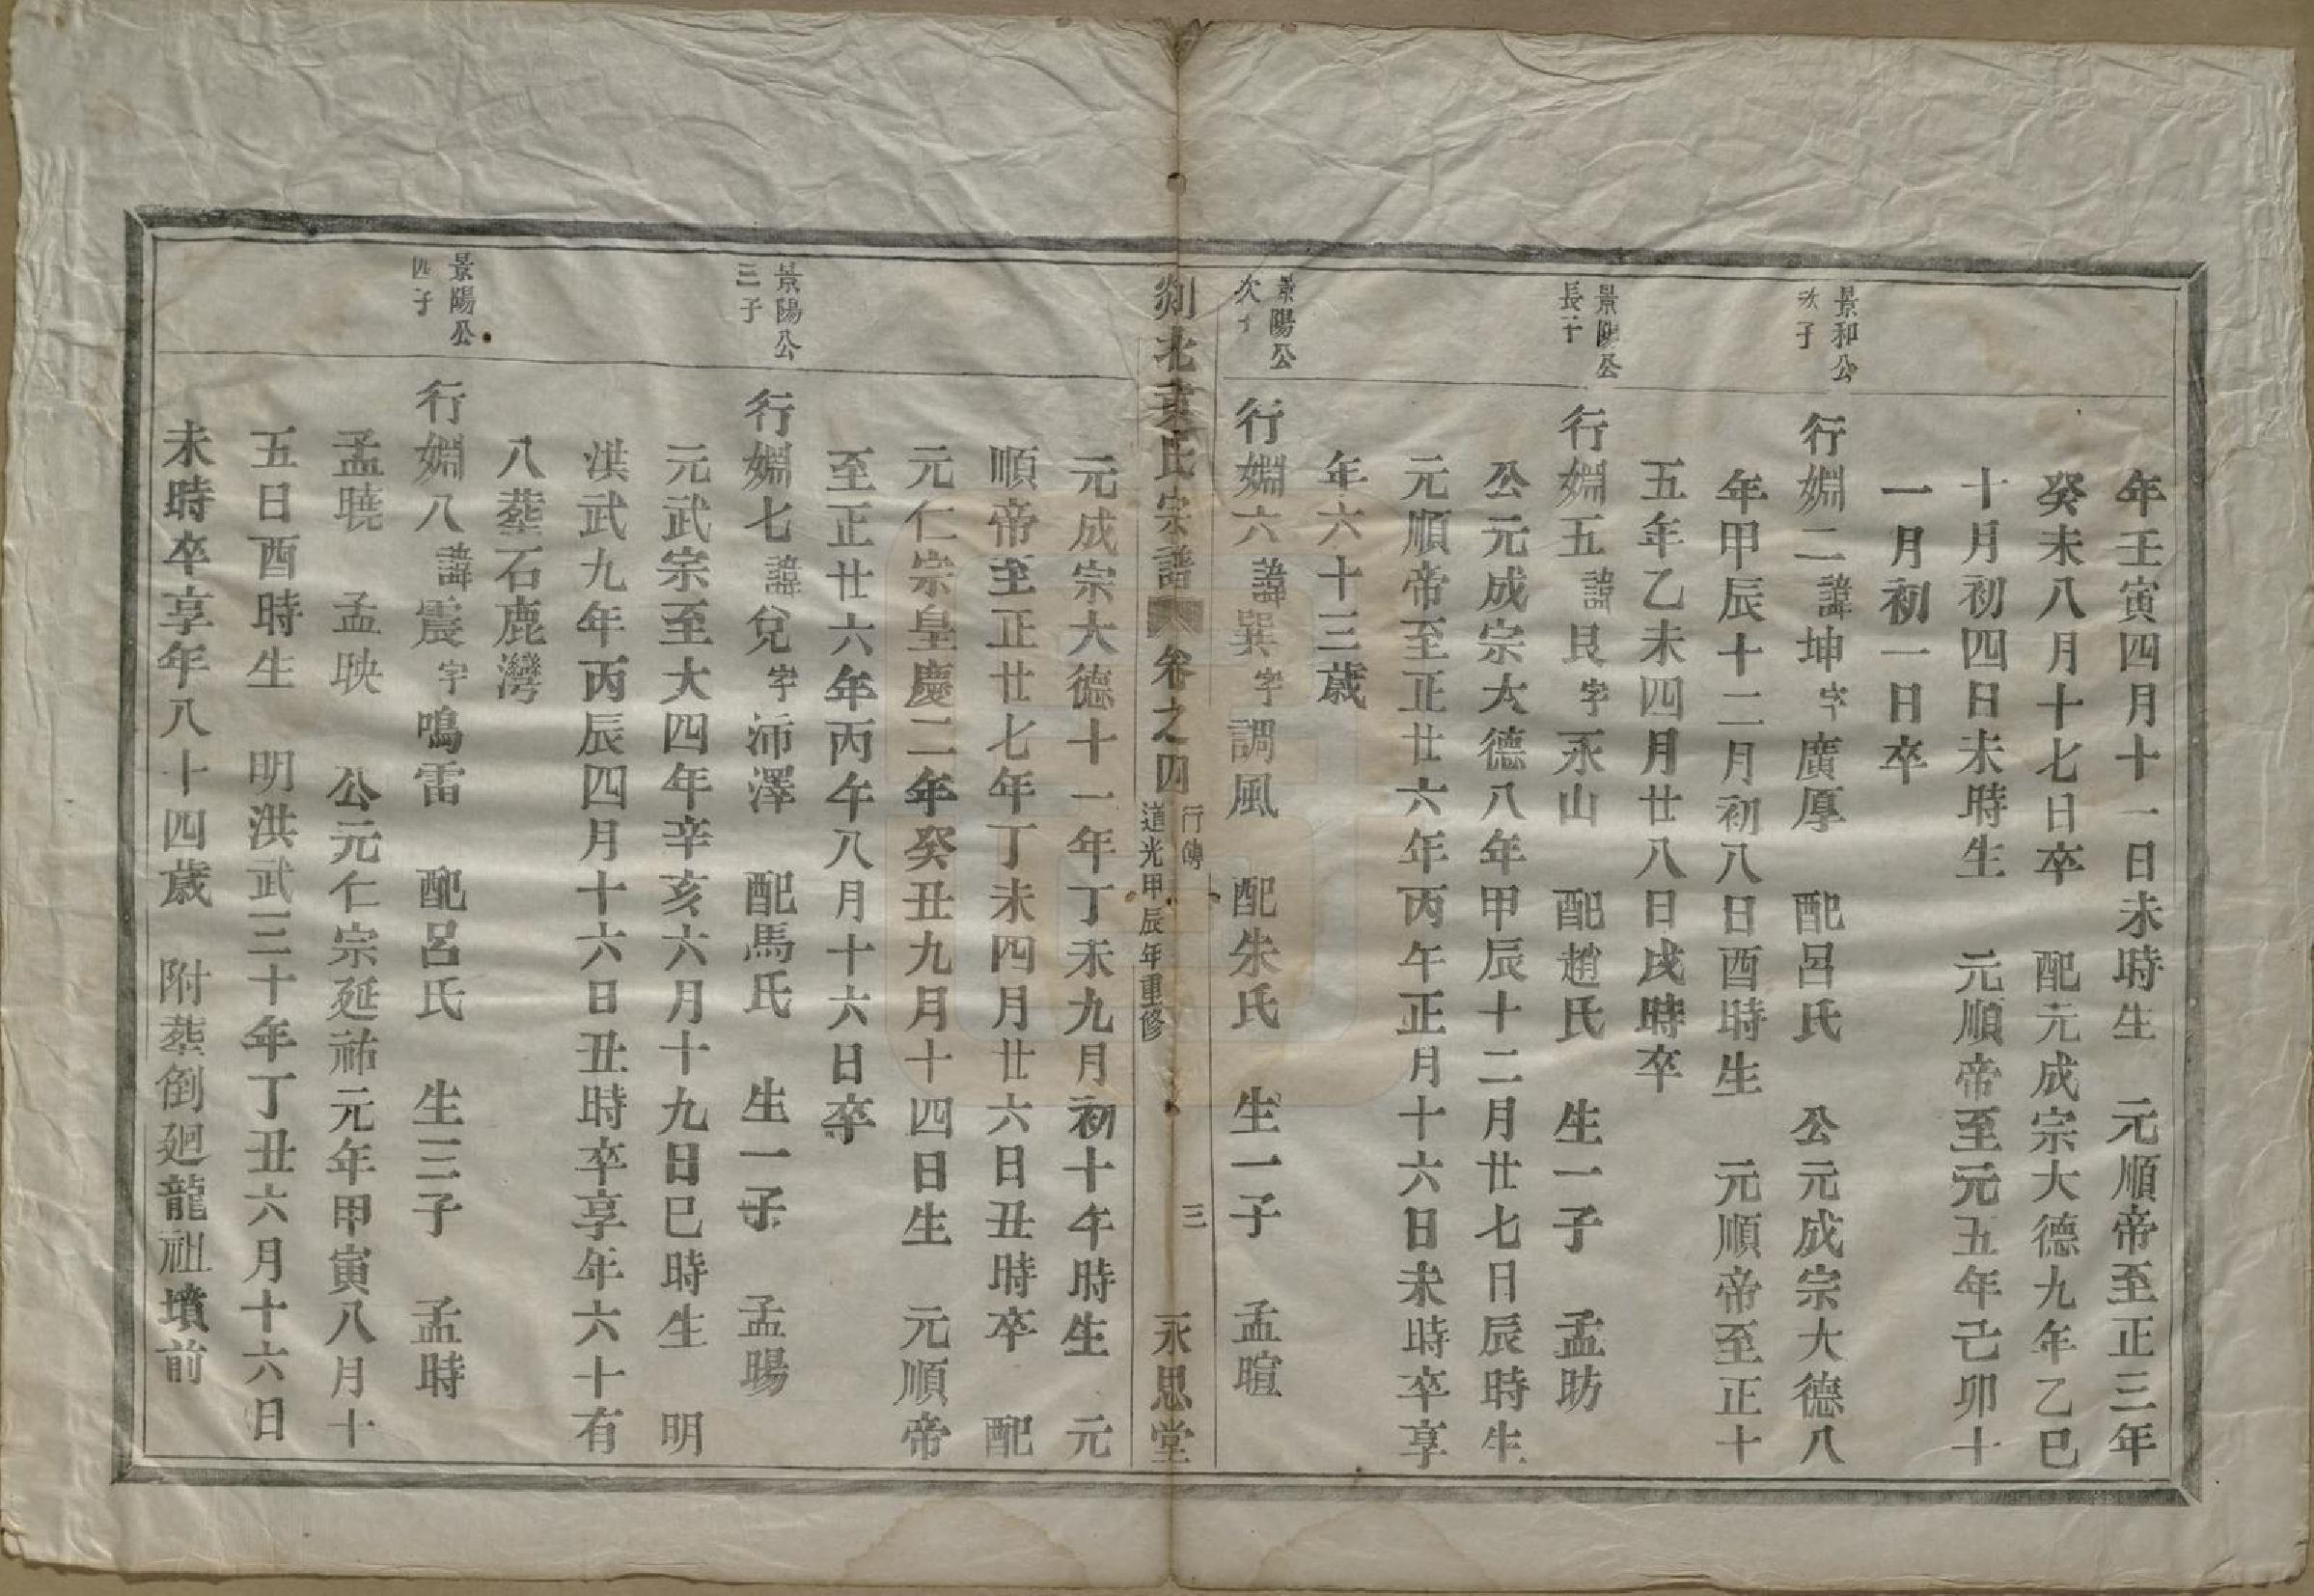 年壬寅四月十一日未時生　元順帝至正三年
癸未八月十七日卒　配元成宗大德九年乙巳
十月初四日未時生　元順帝至元五年己卯十
一月初一日卒
景和公
次子
行婣二諱坤字廣厚　配呂氏　公元成宗大德八
年甲辰十二月初八日酉時生　元順帝至正十
五年乙未四月廿八日戌時卒
景陽公
長子
行婣五諱艮字永山　配趙氏　生一子　孟昉
公元成宗大德八年甲辰十二月廿七日辰時生
元順帝至正廿六年丙午正月十六日未時卒享
年六十三歲
景陽公
次子
行婣六諱巽字調風　配朱氏　生一子　孟暄
剡北 氏宗譜　卷之四　行傳　道光甲辰年重修　三　永思堂
元成宗大德十一年丁未九月初十午時生　元
順帝至正廿七年丁未四月廿六日丑時卒　配
元仁宗皇慶二年癸丑九月十四日生　元順帝
至正廿六年丙午八月十六日卒
景陽公
三子
行婣七諱兌字沛澤　配馬氏　生一子　孟暘
元武宗至大四年辛亥六月十九日巳時生　明
洪武九年丙辰四月十六日丑時卒享年六十有
八塟石鹿灣
景陽公
四子
行婣八諱震字鳴雷　配呂氏　生三子　孟時
孟曉　孟映　公元仁宗延祐元年甲寅八月十
五日酉時生　明洪武三十年丁丑六月十六日
未時卒享年八十四歲　附塟倒廻龍祖墳前